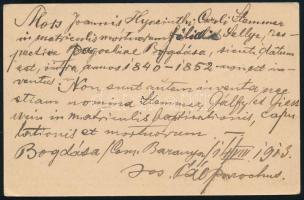 Mors Joannis Hyacinthi Caroli Stemmer
in matriculis mortuorum filialis Sellye, res-
pective Bogdásae Bogdása, sicuti datum
est, intra annos 1840-1852 non est in-
ventus. Non sunt autem inventa nec
etiam nomina Stemmer, Pálffy et Gies
in matriculis baptisatorum, copu-
lationis et mortuorum.
Bogdása /Com. Baranya/ 1913.
Jos. Pál parochus.